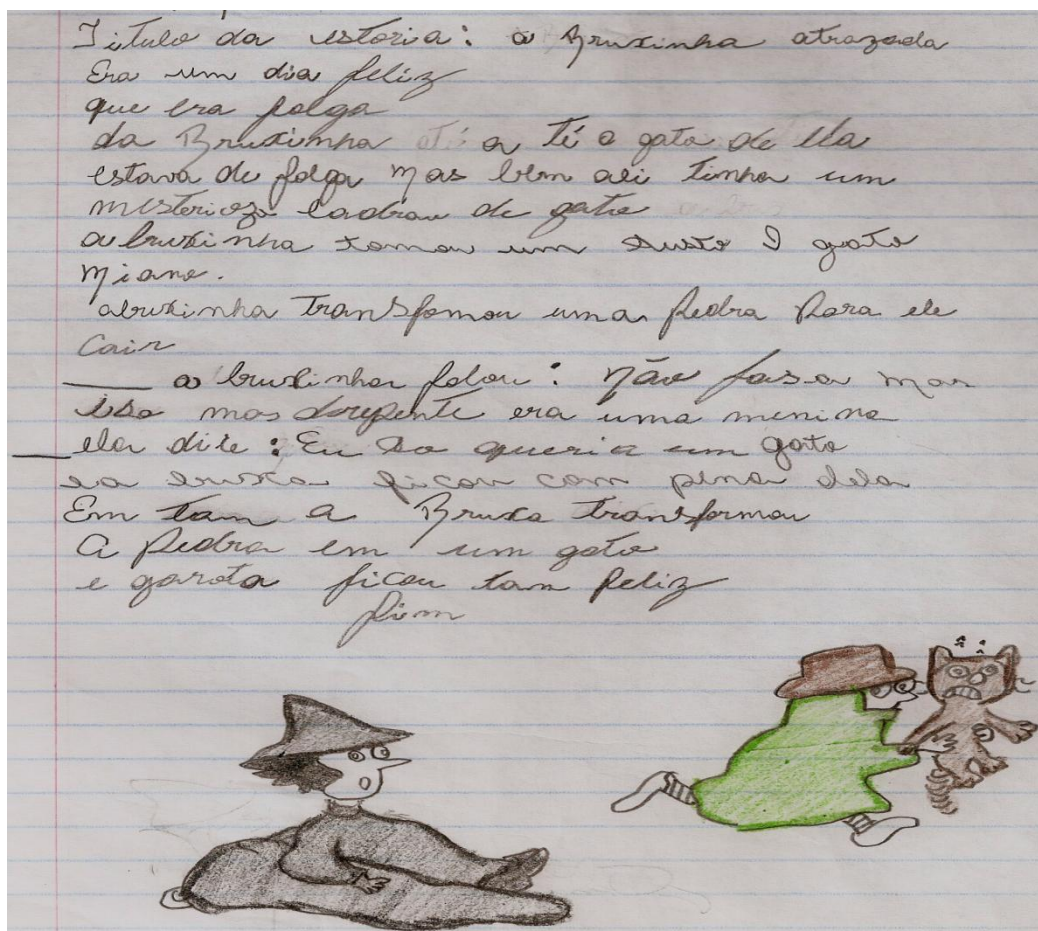 Titulo da estoria: a Bruxinha atrazada
Era um dia feliz
que era folga
da Bruximha a té o gato de ela
estava de folga mas bem ali tinha um
misteriozo ladrau de gato
a bruxinha tomou um susto O gato
miano.
abruxinha transfomou uma Pedra Para ele
Cair
___ a bruxinha falou: não fasa mas
iso mas derepente era uma menina
___ ela dise: Eu so queria um gato
ea bruxa ficou com pena dela
Em tam a Bruxa transformou
A Pedra em um gato
e garota ficou tam feliz
fim